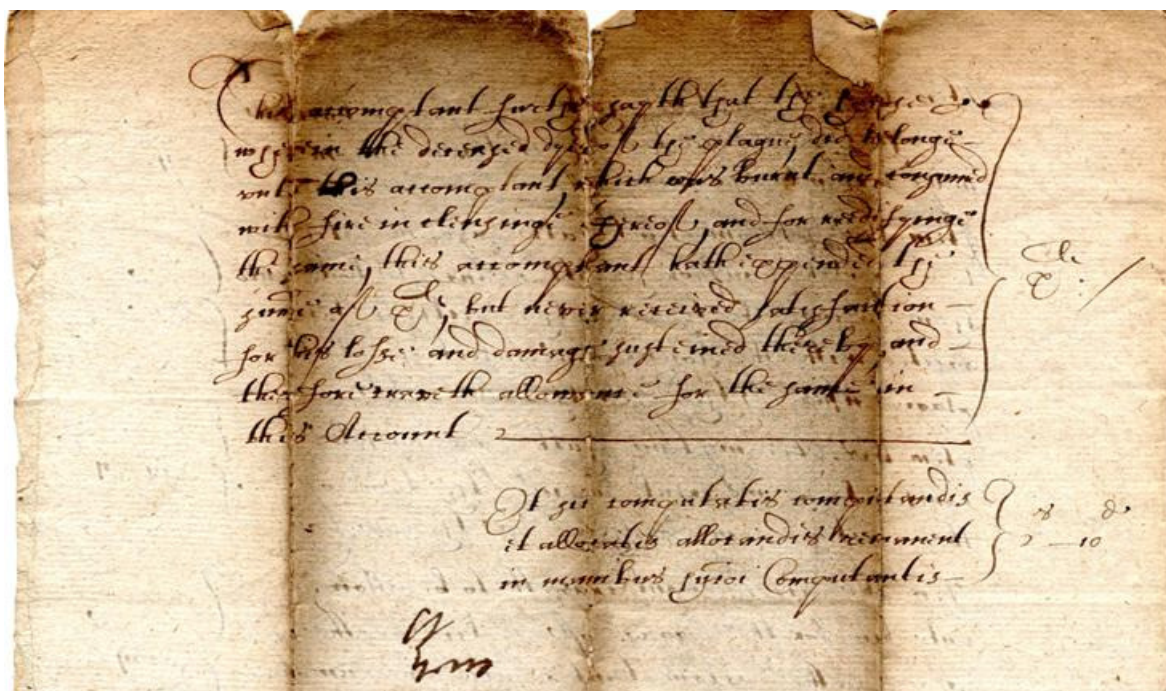 This accomptant further sayth that the howse
wherein the deceased dyed of the plague did belonge
unto this accomptant, which was burnt and consumed
with fire in clensinge thereof, and for reedifyinge
the same, this accomptant hath expended the
summe of xli, but never received satisfaction
for his losse and damage susteined thereby, and
therefore craveth allowance for the same in
this Account
xli
Et sic computatis computandis
et allocatis allocandis remanent
in manibus huiusmodi Computantis
s d
2 — 10